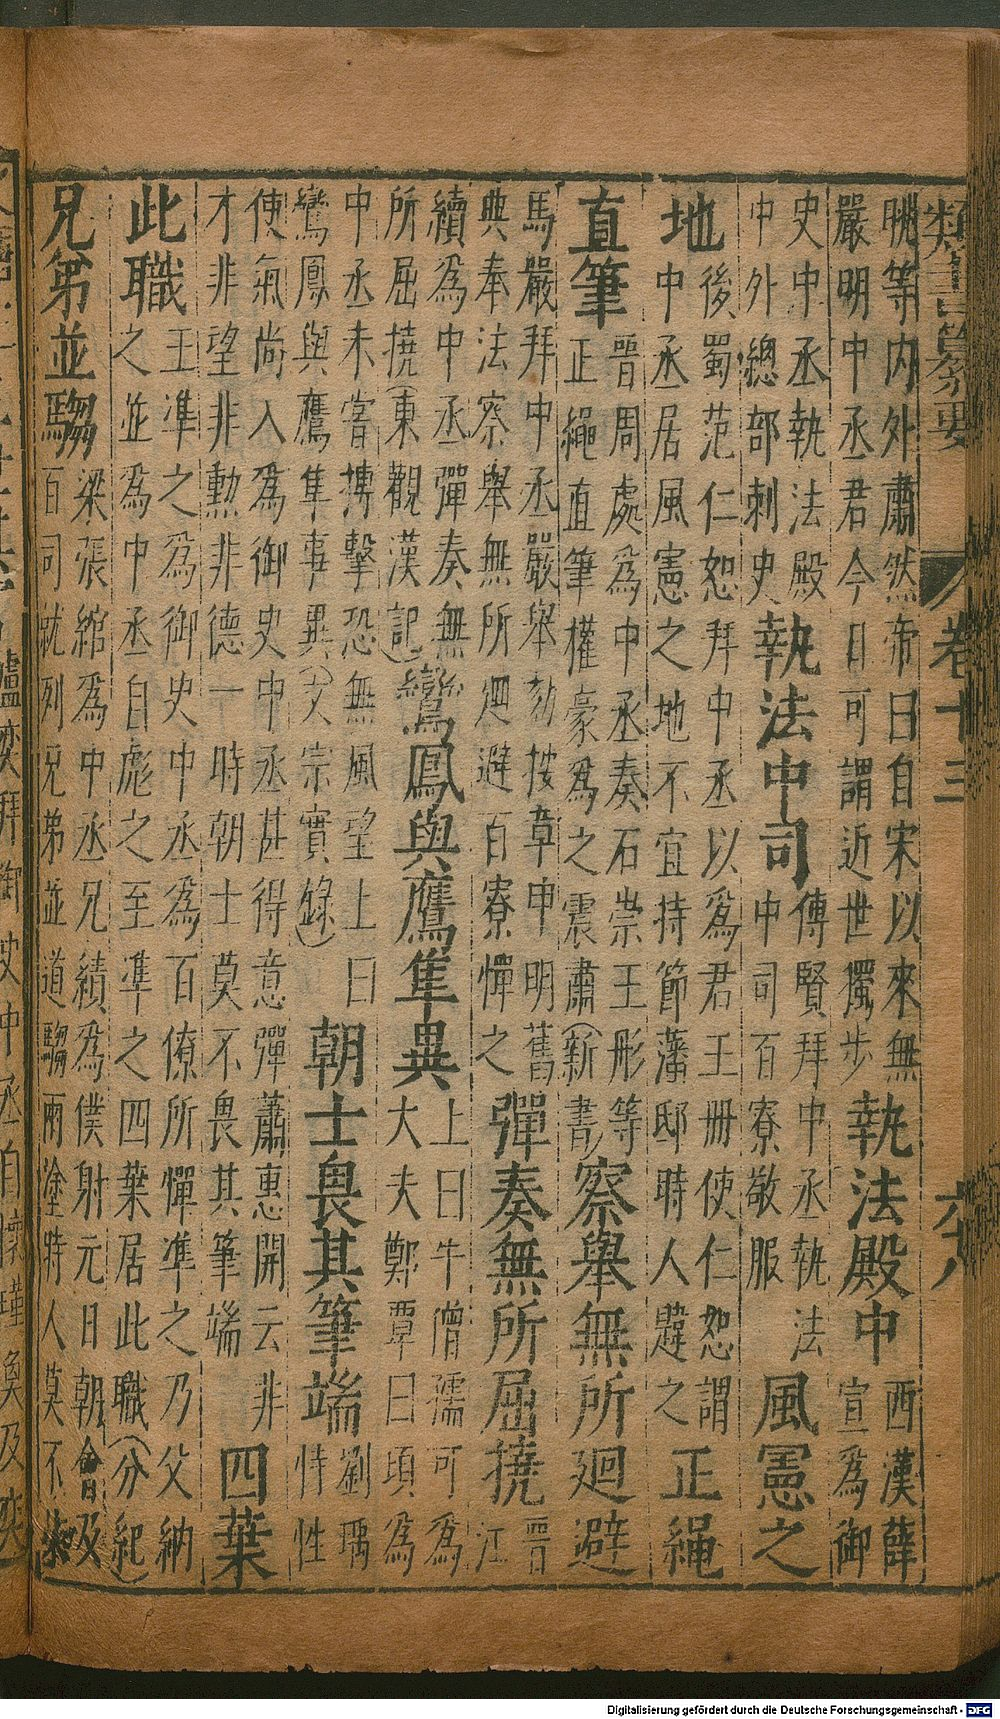 類書纂要 卷十三 六八
晀等內外肅然帝曰自宋以來無
嚴明中丞君今日可謂近世獨步
執法殿中
西漢薛
宣為御
史中丞執法殿
中外總部刺史
執法中司
傳賢拜中丞執法
中司百寮敬服
風憲之
地
後蜀范仁恕拜中丞以為君王册使仁恕謂
中丞居風憲之地不宜持節藩邸時人韙之
正繩
直筆
晉周處為中丞奏石崇王彤等
正繩直筆權豪為之震肅(新書)
察舉無所廻避
晉
江
馬嚴拜中丞嚴舉劾按章申明舊
典奉法察舉無所廻避百寮憚之
彈奏無所屈撓
續為中丞彈奏無
所屈撓(東觀漢記)
鸞鳳與鷹隼異
上曰牛僧孺可為
大夫鄭覃曰頃為
中丞未嘗搏擊恐無風望上曰
鸞鳳與鷹隼事異(文宗實錄)
朝士畏其筆端
劉瑀
恃性
使氣尚人為御史中丞甚得意彈蕭惠開云非
才非望非勳非德一時朝士莫不畏其筆端
四葉
此職
王準之為御史中丞為百僚所憚準之乃父納
之並為中丞自彪之至準之四葉居此職(分紀)
兄弟並騶
梁張綰為中丞兄續為僕射元日朝會及
百司就列兄弟並道騶兩塗時人莫不榮
Digitalisierung gefördert durch die Deutsche Forschungsgemeinschaft - DFG